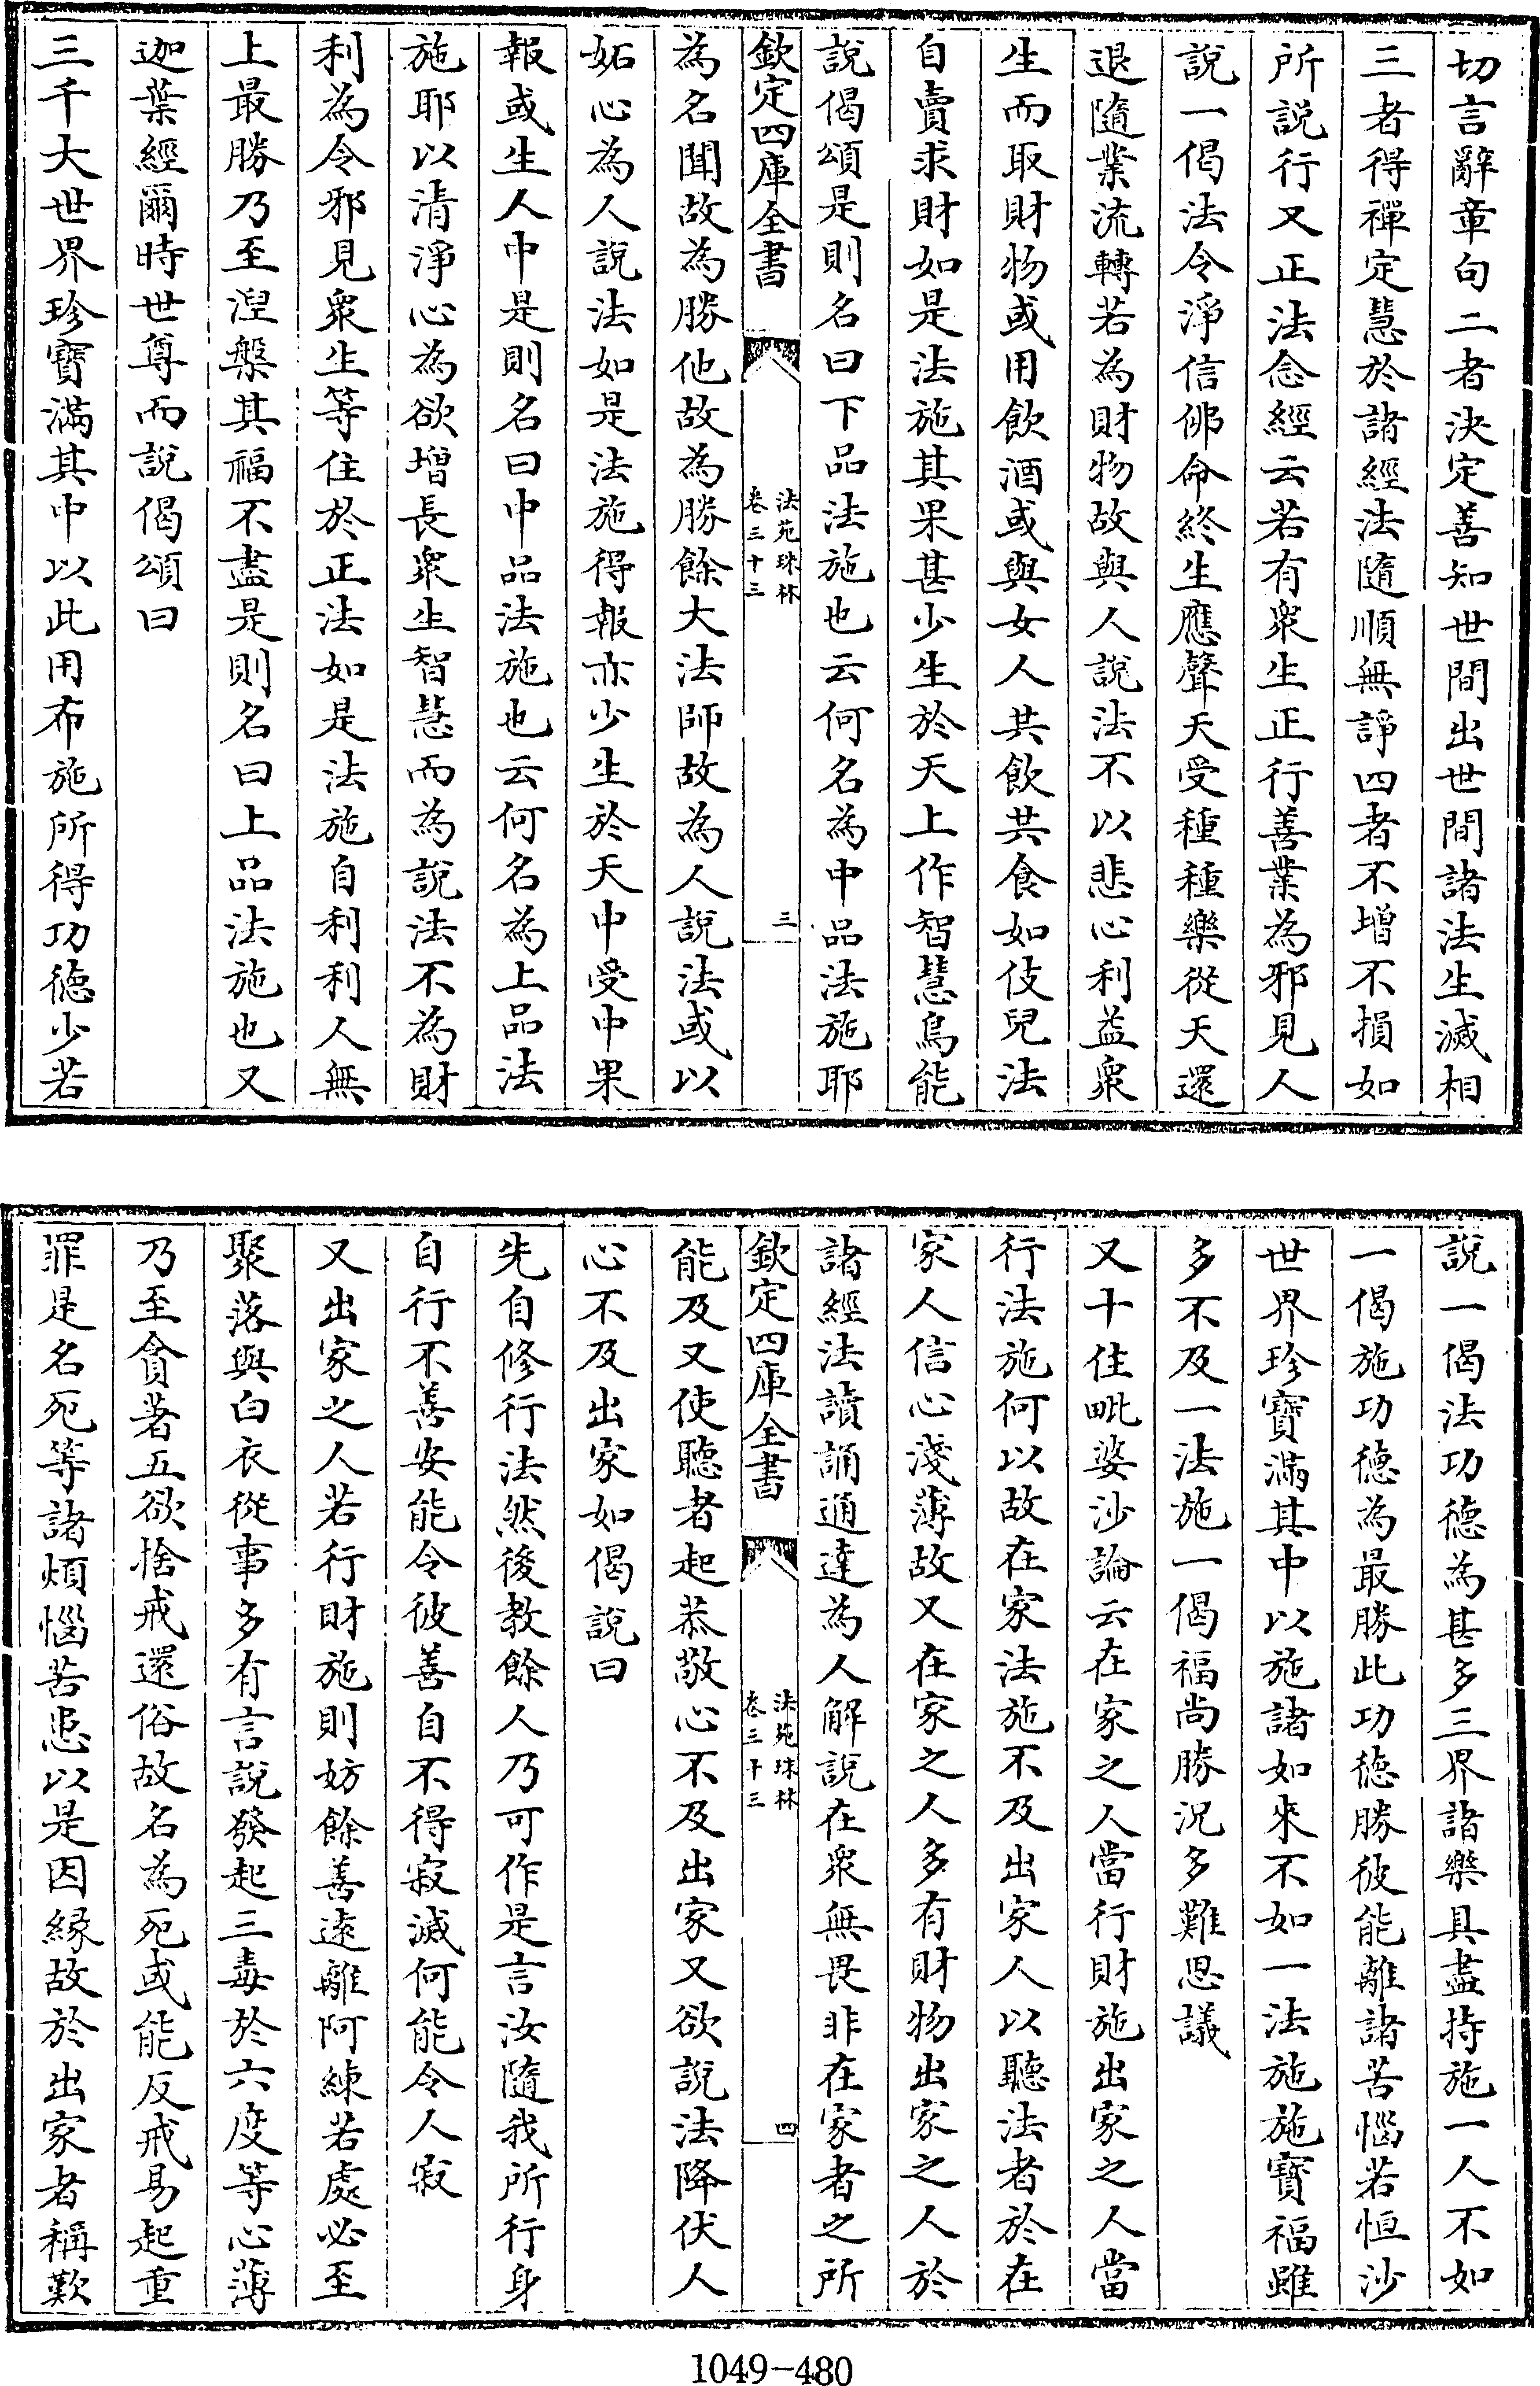 切言辭章句二者決定善知世間出世間諸法生滅相
三者得禪定慧於諸經法隨順無諍四者不增不損如
所說行又正法念經云若有衆生正行善業為邪見人
說一偈法令淨信佛命終生應聲天受種種樂從天還
退隨業流轉若為財物故與人說法不以悲心利益衆
生而取財物或用飲酒或與女人共飲共食如伎兒法
自賣求財如是法施其果甚少生於天上作智慧鳥能
說偈頌是則名曰下品法施也云何名為中品法施耶
欽定四庫全書
法苑珠林
卷三十三
三
為名聞故為勝他故為勝餘大法師故為人說法或以
妬心為人說法如是法施得報亦少生於天中受中果
報或生人中是則名曰中品法施也云何名為上品法
施耶以清淨心為欲增長衆生智慧而為說法不為財
利為令邪見衆生等住於正法如是法施自利利人無
上最勝乃至涅槃其福不盡是則名曰上品法施也又
迦葉經爾時世尊而說偈頌曰
三千大世界珍寶滿其中以此用布施所得功德少若
說一偈法功德為甚多三界諸樂具盡持施一人不如
一偈施功德為最勝此功德勝彼能離諸苦惱若恒沙
世界珍寶滿其中以施諸如來不如一法施施寶福雖
多不及一法施一偈福尚勝況多難思議
又十住毗婆沙論云在家之人當行財施出家之人當
行法施何以故在家法施不及出家人以聽法者於在
家人信心淺薄故又在家之人多有財物出家之人於
諸經法讀誦通達為人解說在衆無畏非在家者之所
欽定四庫全書
法苑珠林
卷三十三
四
能及又使聽者起恭敬心不及出家又欲說法降伏人
心不及出家如偈說曰
先自修行法然後教餘人乃可作是言汝隨我所行身
自行不善安能令彼善自不得寂滅何能令人寂
又出家之人若行財施則妨餘善遠離阿練若處必至
聚落與白衣從事多有言說發起三毒於六度等心薄
乃至貪著五欲捨戒還俗故名為死或能反戒易起重
罪是名死等諸煩惱苦患以是因緣故於出家者稱歎
1049-480